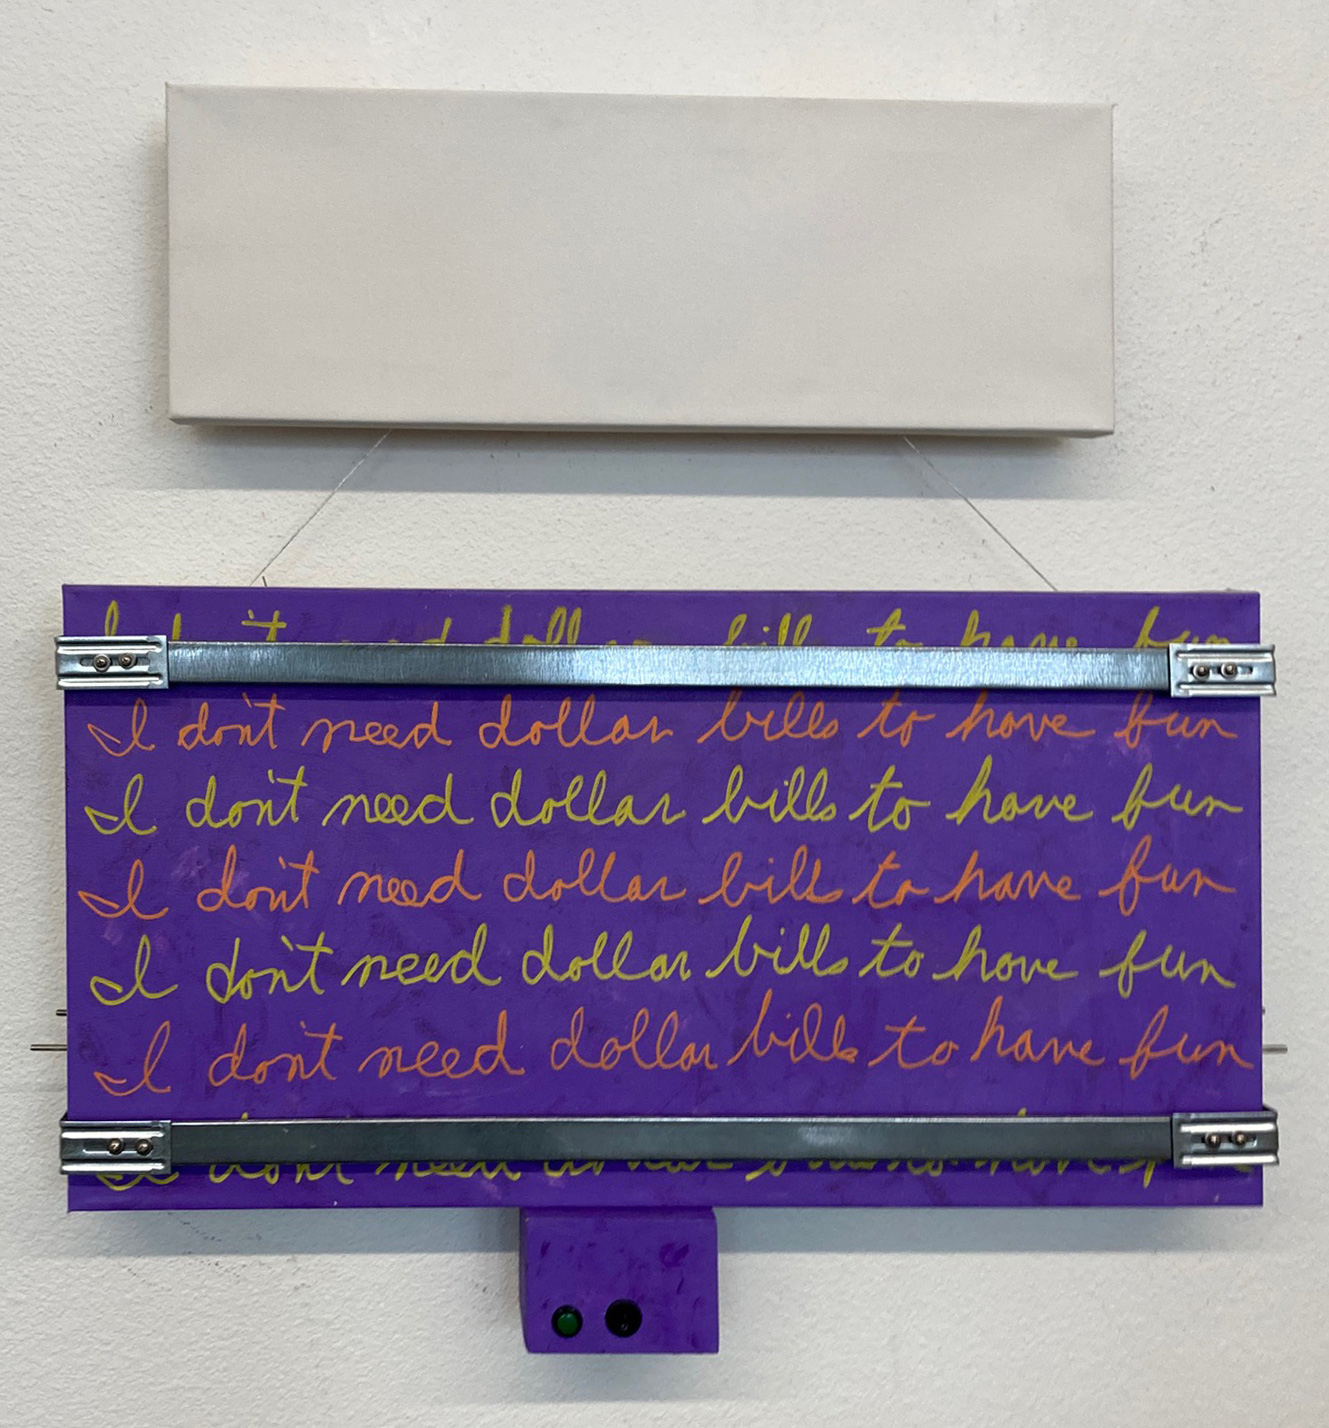 I don't need dollar bills to have fun
I don't need dollar bills to have fun
I don't need dollar bills to have fun
I don't need dollar bills to have fun
I don't need dollar bills to have fun
I don't need dollar bills to have fun
I don't need dollar bills to have fun